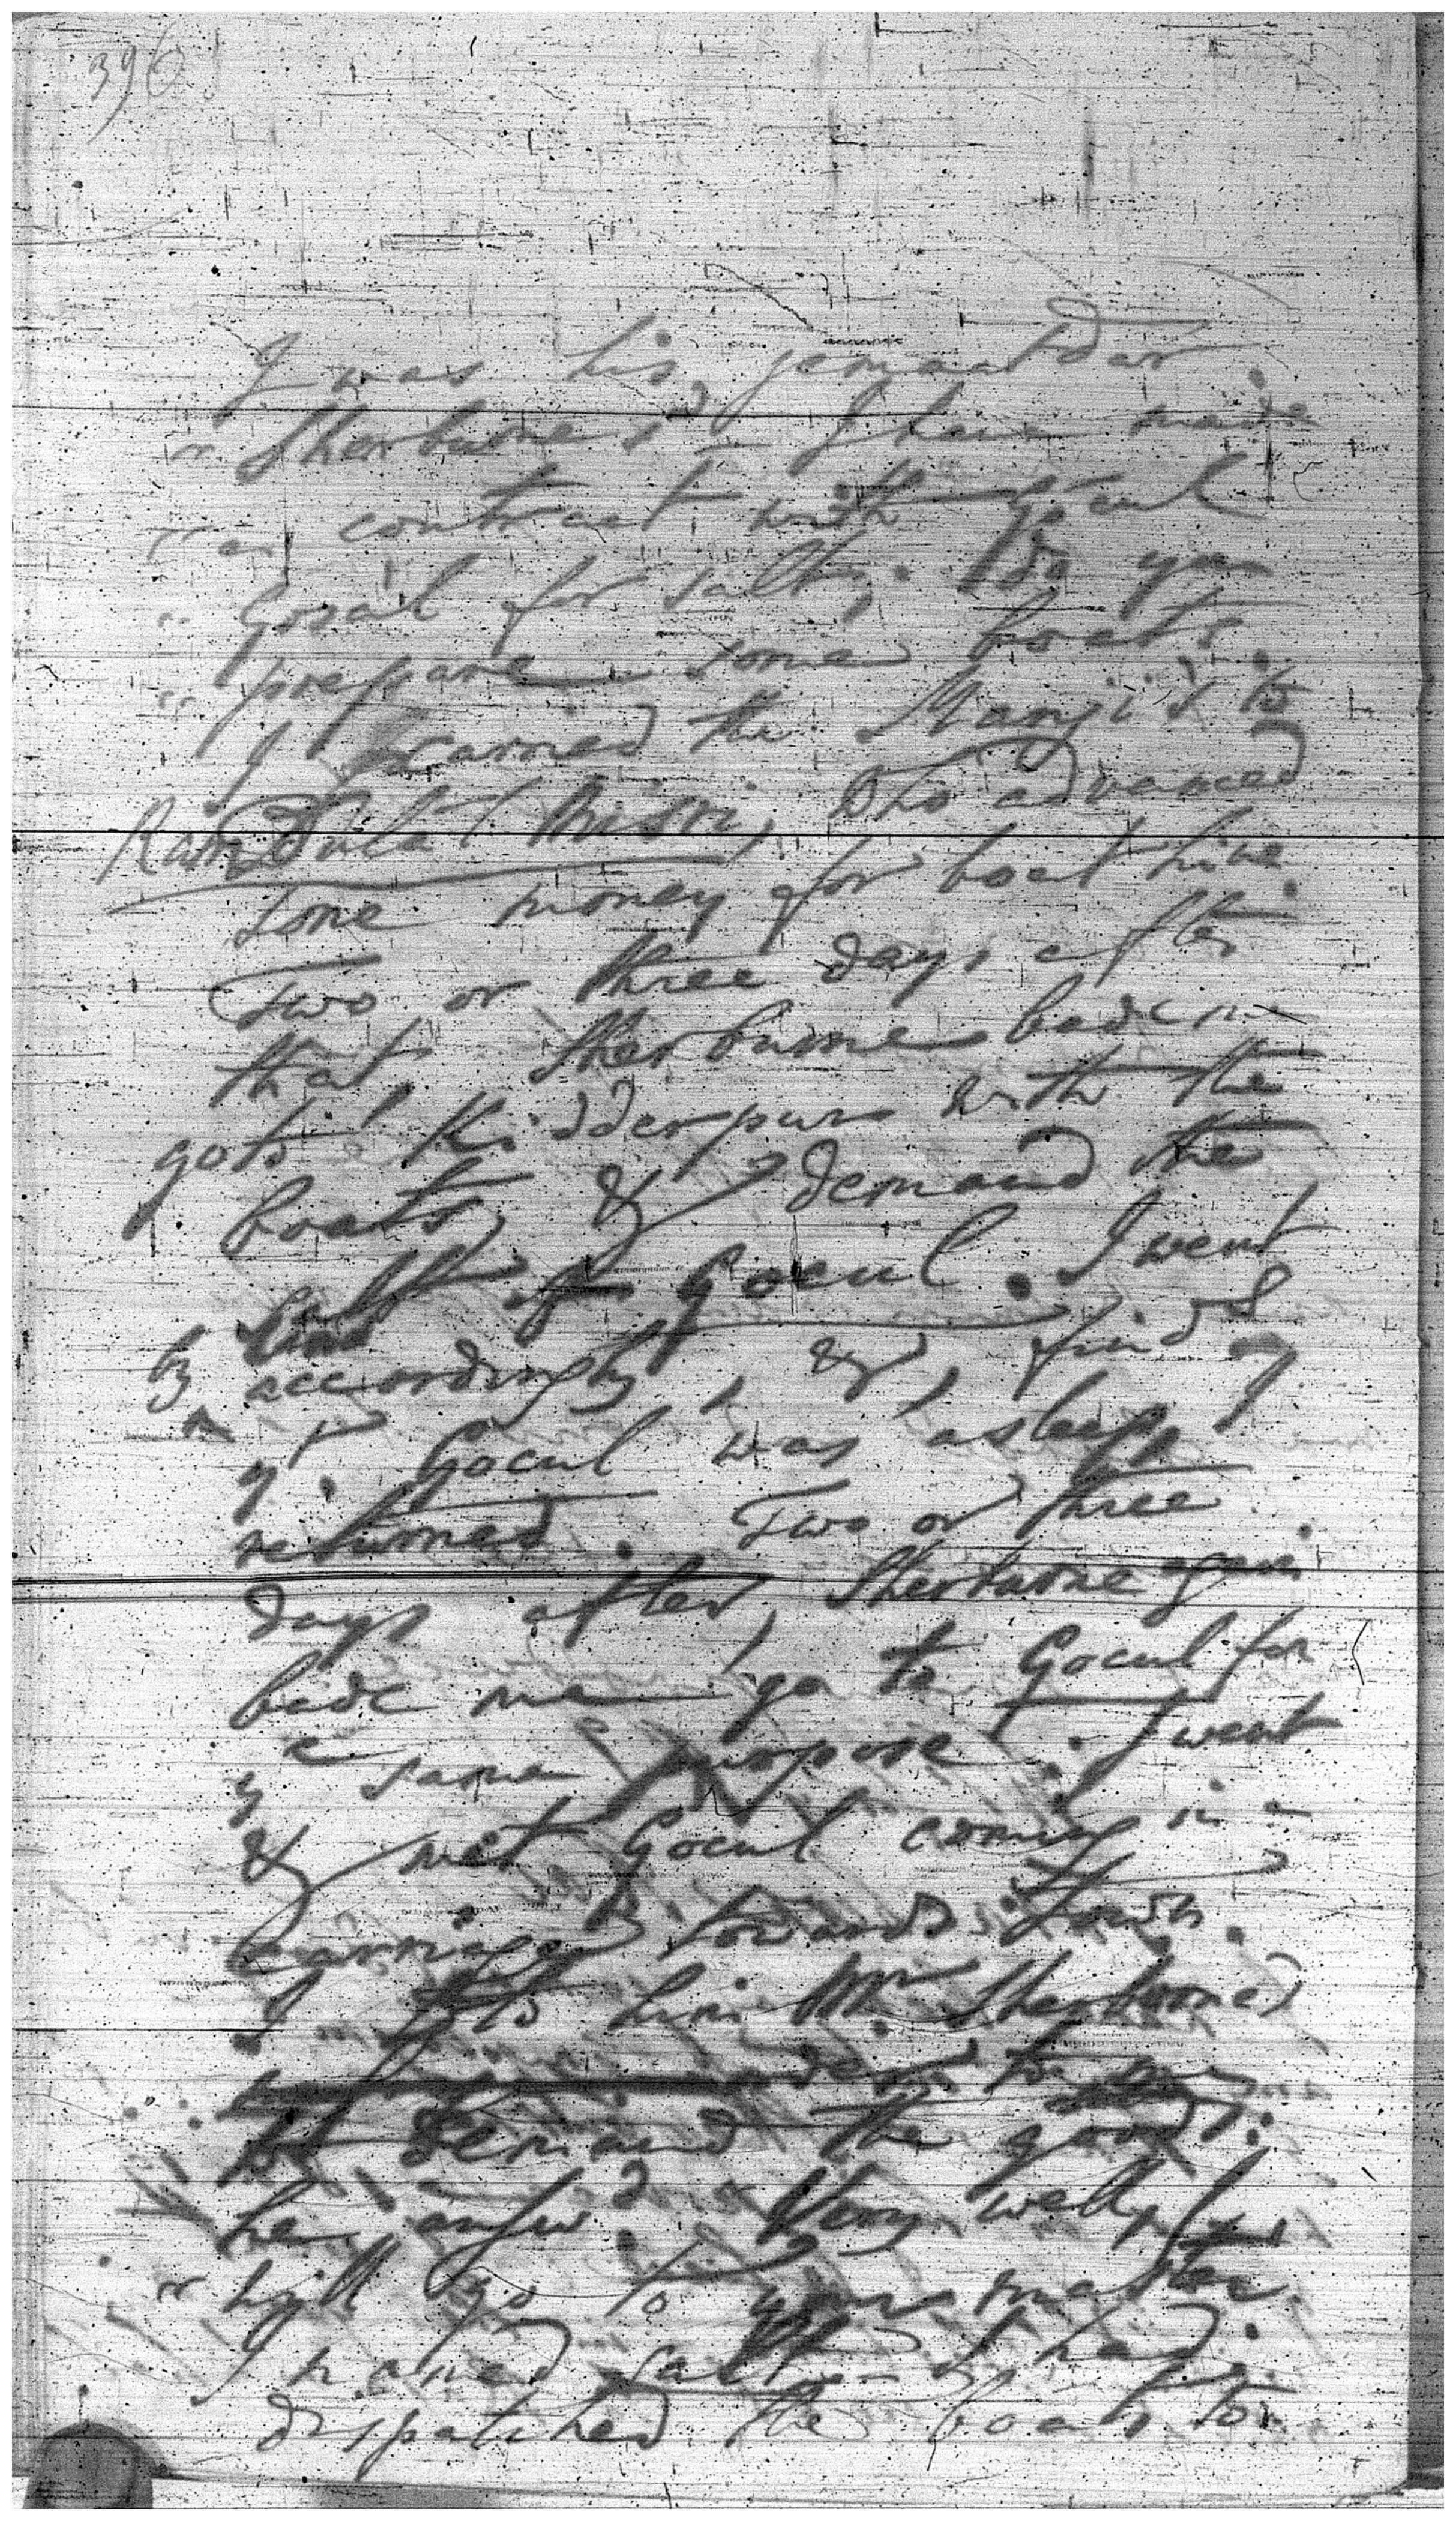 396
I was his jemautdar.
" Sherburne's. I have made
" a contract with Gocul
" Gosaul for salt. Do you
" prepare some boats.
I carried the Mangi's to
Ram Dulal Missri, who advanced
some money for boat hire
Two or three days after
that, Sherburne bade me
go to Kidderpur with the
boats, & demand the
salt of Gocul. I went
accordingly, & finds
Gocul was asleep
returned. Two or three
days after, Sherburne again
bade me go to Gocul for
y e same purpose. I went
& met Gocul coming in
carriage towards Town.
I to him Mr Sherburne's
demand the
he answd. Very well, I
" will go to your master
I had
dispatched the boats to